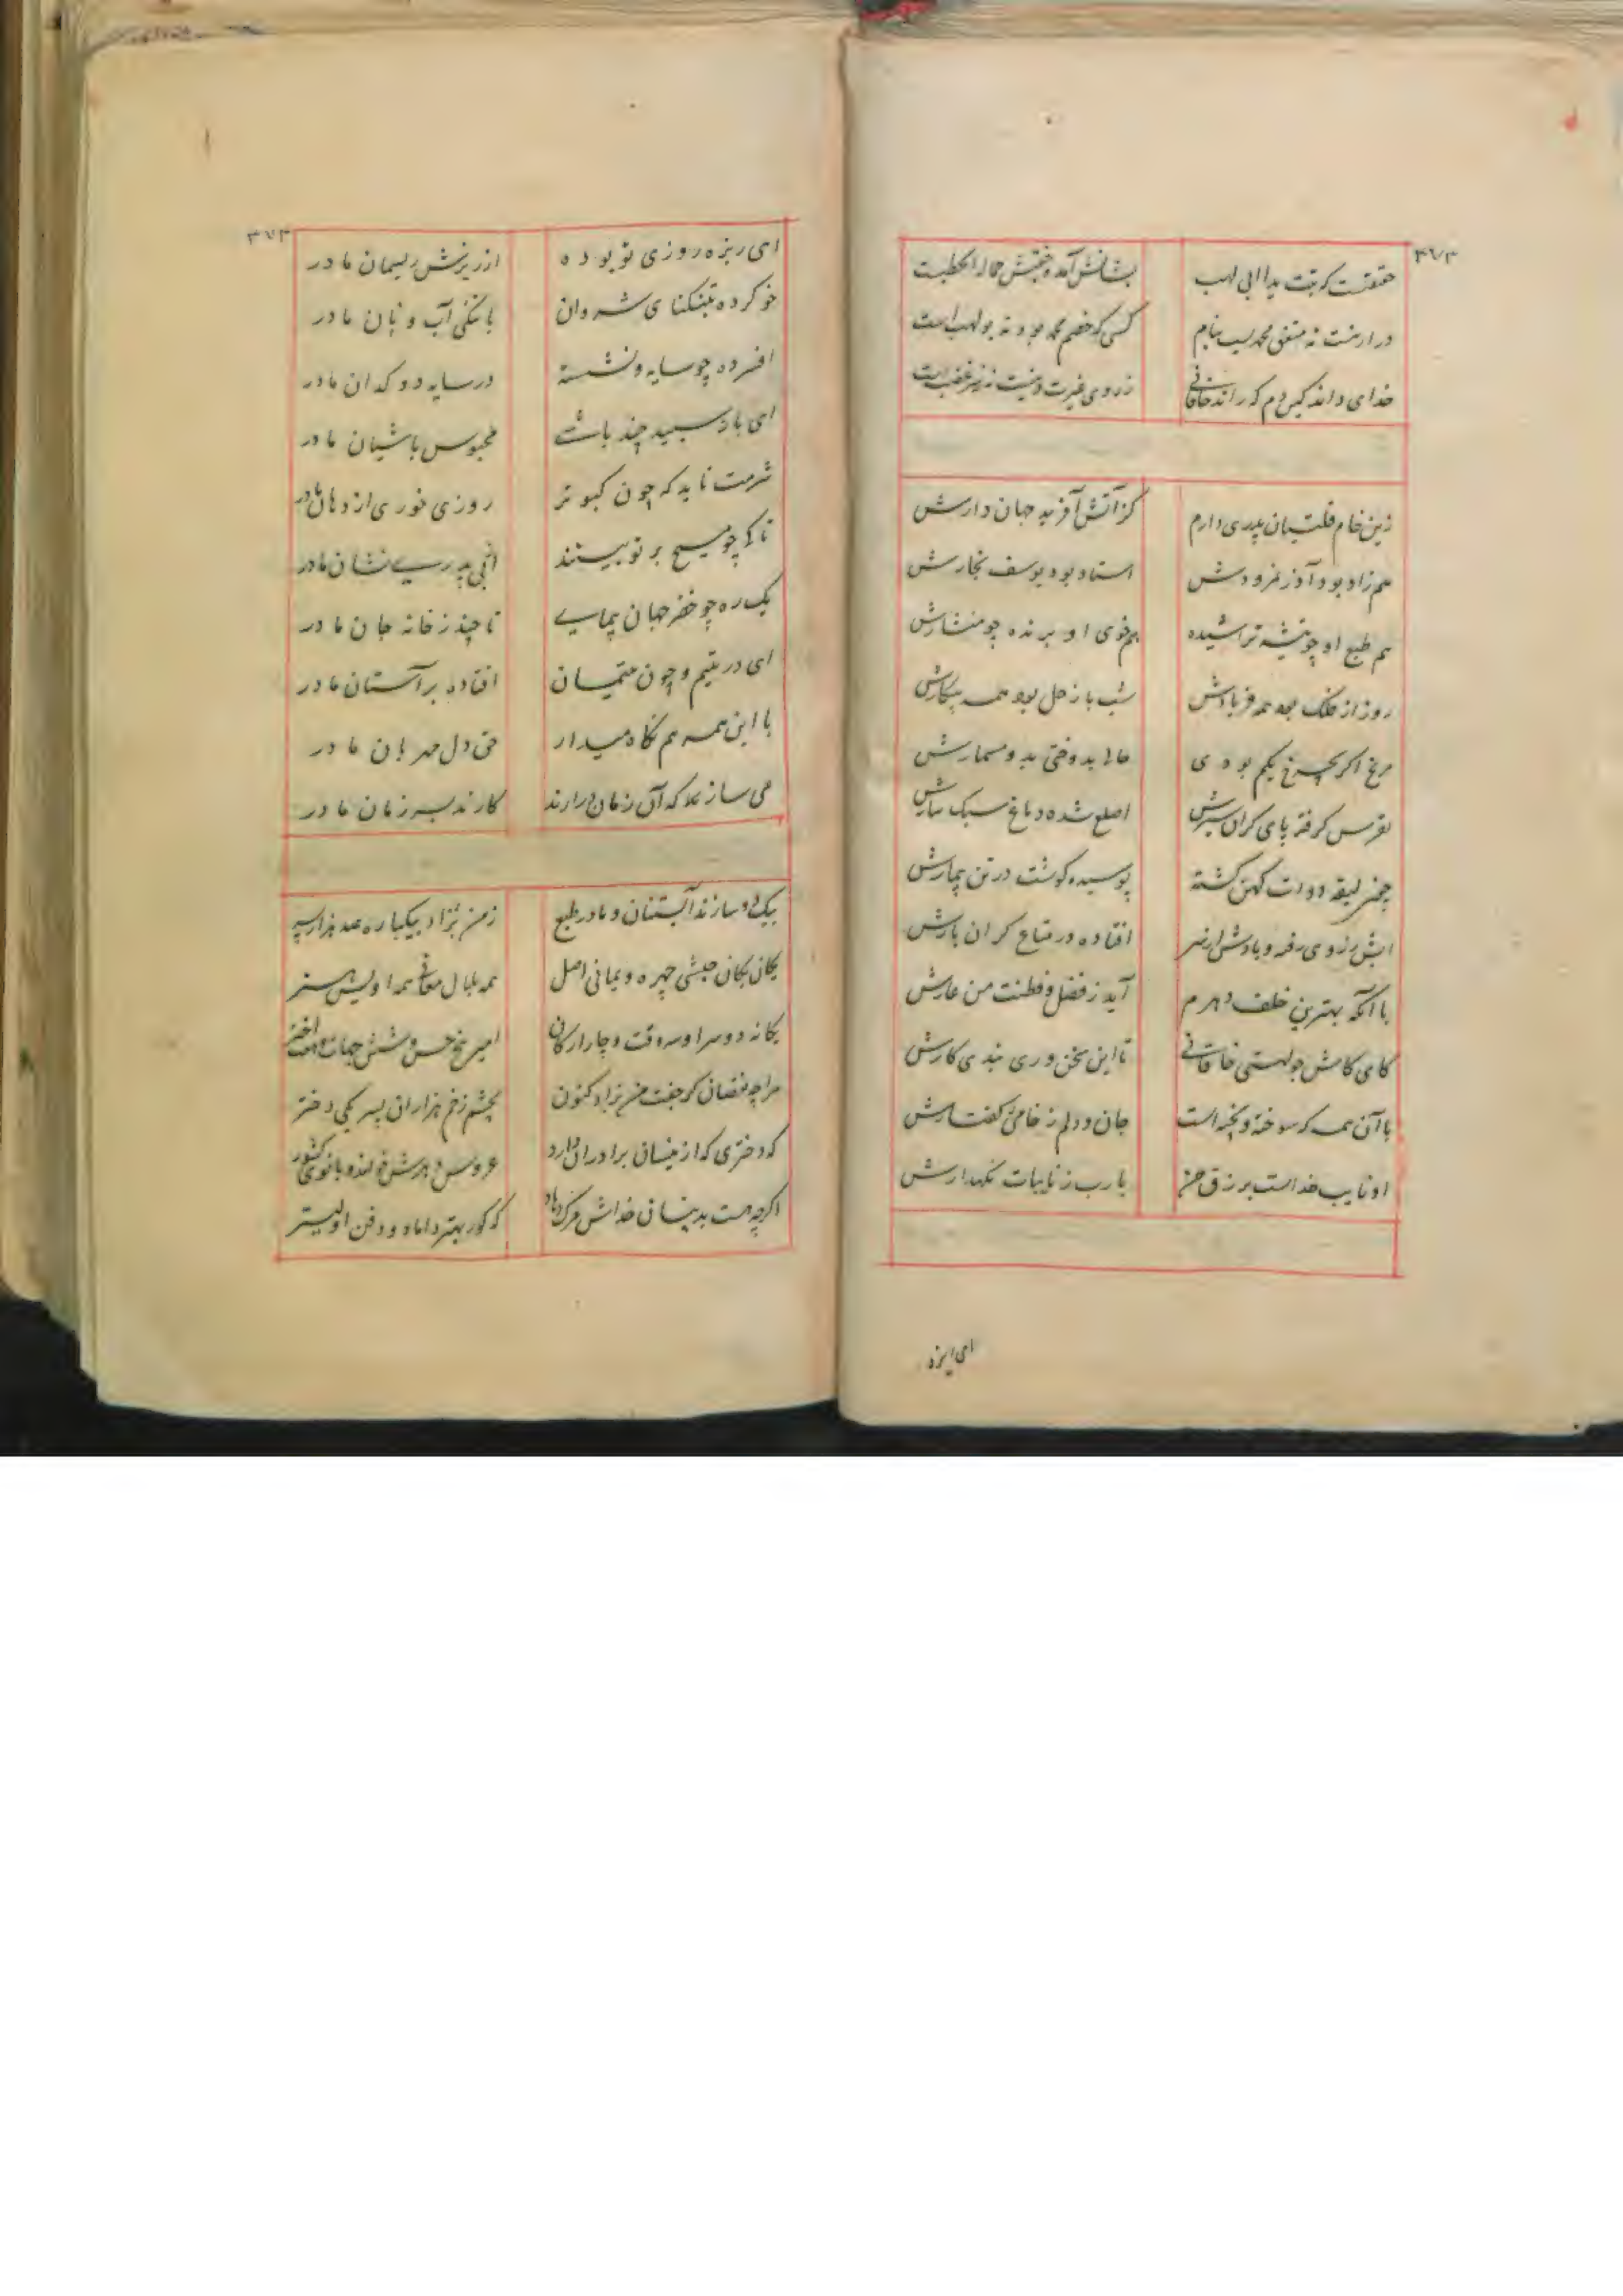 ۳۷۳
حقیقتست که تبت یدا ابی لهب
بشانش آمده جفتش حمالة الحطبست
کسی که خصم محمد بود نه بولهب است
خدای داند کین دم که راند خاقانی
ز روی غیرت دینست نز سر غضب است
زین خام قلتبان پدری دارم
کز آتش آفرید جهان دارش
همزاد بود آزر نمرودش
استاد بود یوسف نجارش
هم طبع او چو تیشه تراشیده
هم خوی او برنده چو منشارش
روز از فلک بود همه فریادش
شب با زحل بود همه پیکارش
مریخ اگر بچرخ یکم بودی
حالی بدوختی بدو مسمارش
نقرس گرفته پای گران سیرش
اصلع شده دماغ سبک سارش
چون لیقه دوات کهن گشته
پوسیده گوشت در تن بیمارش
آبش ز روی رفته و بادش از سر
افتاده در متاع گران بارش
با آنکه بهترین خلف دهرم
آید ز فضل و فطنت من عارش
کای کاش جولهستی خاقانی
تا این سخنوری نبدی کارش
با آن همه که سوخته و پخته است
جان و دلم ز خامی گفتارش
او نایب خداست برزق من
یارب ز نایبات نگهدارش
ای ریزه
۳۷۳
ای ریزه روزی تو بوده
از ریزش ریسمان مادر
خو کرده بتنگنای شروان
با تنگی آب و نان مادر
افسرده چو سایه و نشسته
در سایه دوکدان مادر
ای باز سپید چند باشی
محبوس باشیان مادر
شرمت ناید که چون کبوتر
روزی خوری از دهان مادر
تا کی چو مسیح بر تو بینند
از بی پدری نشان مادر
یک ره چو خضر جهان بپیمای
تا چند ز خانه جان مادر
ای در یتیم و چون یتیمان
افتاده بر آستان مادر
با این همه هم نگاه میدار
حق دل مهربان مادر
می ساز که آن زمان درآرند
کارند بسر زمان مادر
زمن بزاد بیکباره صد هزار پسر
یکان یکان حبشی چهره و یمانی اصل
همه بلال معانی همه اویس هنر
یگانه دو سرا و سه وقت و چار ارکان
امیر پنج حس و شش جهات و هفت اختر
مرا چه نقصان گر جفت من بزاد کنون
بچشم زخم هزاران پسر یکی دختر
که دختری که ازینسان برادران دارد
عروس دهرش خوانند و بانوی کشور
اگرچه هست بدینسان خداش مرگ دهاد
که گور بهتر داماد و دفن اولیتر